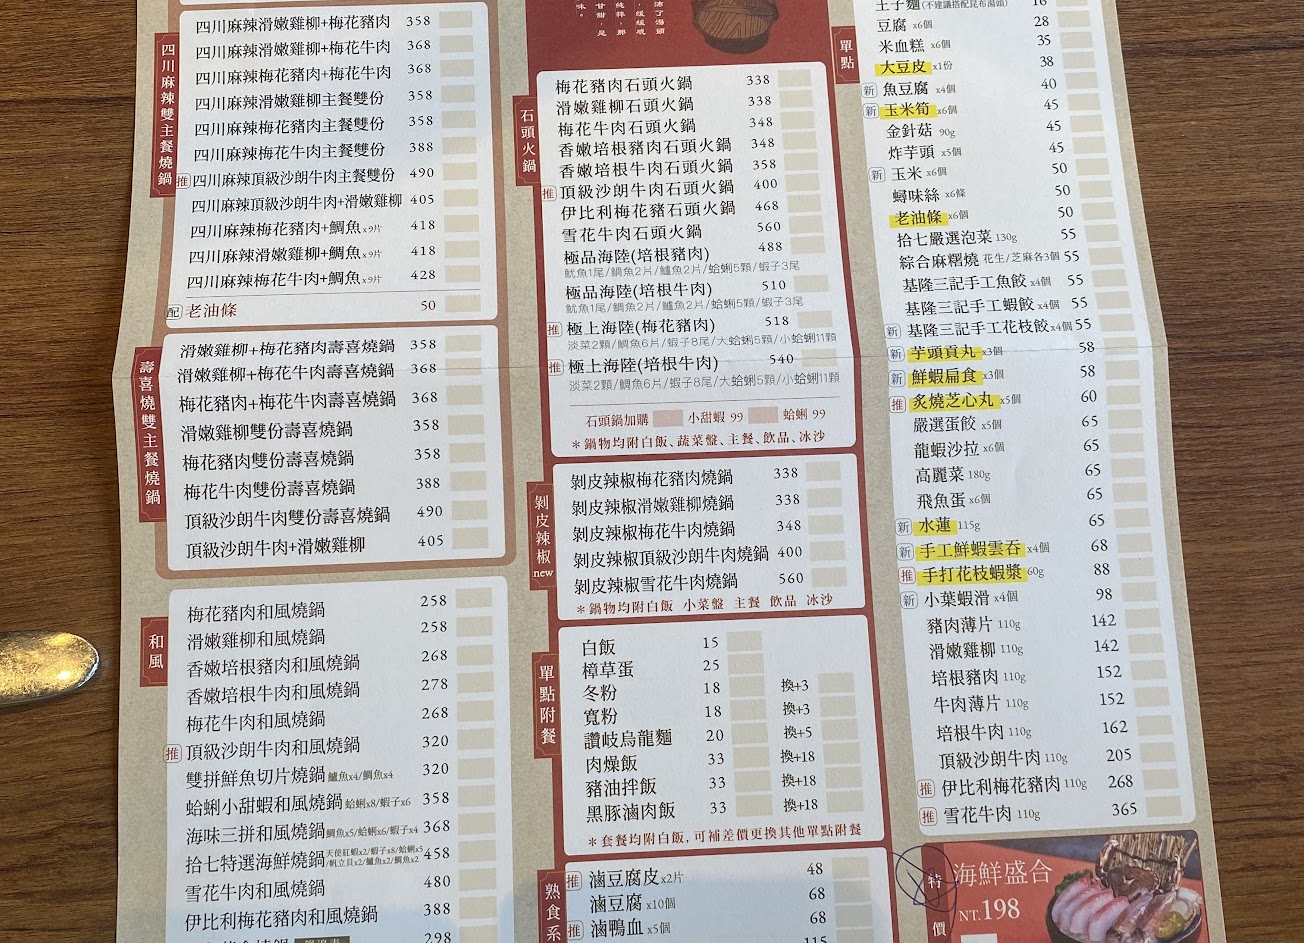 四川麻辣雙主餐燒鍋
四川麻辣滑嫩雞柳+梅花豬肉 358
四川麻辣滑嫩雞柳+梅花牛肉 368
四川麻辣梅花豬肉+梅花牛肉 368
四川麻辣滑嫩雞柳主餐雙份 358
四川麻辣梅花豬肉主餐雙份 358
四川麻辣梅花牛肉主餐雙份 388
推 四川麻辣頂級沙朗牛肉主餐雙份 490
四川麻辣頂級沙朗牛肉+滑嫩雞柳 405
四川麻辣梅花豬肉+鯛魚x9片 418
四川麻辣滑嫩雞柳+鯛魚x9片 418
四川麻辣梅花牛肉+鯛魚x9片 428
配 老油條 50
壽喜燒雙主餐燒鍋
滑嫩雞柳+梅花豬肉壽喜燒鍋 358
滑嫩雞柳+梅花牛肉壽喜燒鍋 368
梅花豬肉+梅花牛肉壽喜燒鍋 368
滑嫩雞柳雙份壽喜燒鍋 358
梅花豬肉雙份壽喜燒鍋 358
梅花牛肉雙份壽喜燒鍋 388
頂級沙朗牛肉雙份壽喜燒鍋 490
頂級沙朗牛肉+滑嫩雞柳 405
和風
梅花豬肉和風燒鍋 258
滑嫩雞柳和風燒鍋 258
香嫩培根豬肉和風燒鍋 268
香嫩培根牛肉和風燒鍋 278
梅花牛肉和風燒鍋 268
推 頂級沙朗牛肉和風燒鍋 320
雙拼鮮魚切片燒鍋 鱸魚x4/鯛魚x4 320
蛤蜊小甜蝦和風燒鍋 蛤蜊x8/蝦子x6 358
海味三拼和風燒鍋 鯛魚x5/蛤蜊x6/蝦子x4 368
拾七特選海鮮燒鍋 天使紅蝦x2/蝦子x8/蛤蜊x5/帆立貝x2/鱸魚x2/鯛魚x2 458
雪花牛肉和風燒鍋 480
伊比利梅花豬肉和風燒鍋 388
298
石頭火鍋
梅花豬肉石頭火鍋 338
滑嫩雞柳石頭火鍋 338
梅花牛肉石頭火鍋 348
香嫩培根豬肉石頭火鍋 348
香嫩培根牛肉石頭火鍋 358
推 頂級沙朗牛肉石頭火鍋 400
伊比利梅花豬石頭火鍋 468
雪花牛肉石頭火鍋 560
極品海陸(培根豬肉) 488
魷魚1尾/鯛魚2片/鱸魚2片/蛤蜊5顆/蝦子3尾
極品海陸(培根牛肉) 510
魷魚1尾/鯛魚2片/鱸魚2片/蛤蜊5顆/蝦子3尾
推 極上海陸(梅花豬肉) 518
淡菜2顆/鯛魚6片/蝦子8尾/大蛤蜊5顆/小蛤蜊11顆
推 極上海陸(培根牛肉) 540
淡菜2顆/鯛魚6片/蝦子8尾/大蛤蜊5顆/小蛤蜊11顆
石頭鍋加購 小甜蝦 99 蛤蜊 99
*鍋物均附白飯、蔬菜盤、主餐、飲品、冰沙
剝皮辣椒 new
剝皮辣椒梅花豬肉燒鍋 338
剝皮辣椒滑嫩雞柳燒鍋 338
剝皮辣椒梅花牛肉燒鍋 348
剝皮辣椒頂級沙朗牛肉燒鍋 400
剝皮辣椒雪花牛肉燒鍋 560
*鍋物均附白飯 小菜盤 主餐 飲品 冰沙
單點附餐
白飯 15
樟草蛋 25
冬粉 18 換+3
寬粉 18 換+3
讚岐烏龍麵 20 換+5
肉燥飯 33 換+18
豬油拌飯 33 換+18
黑豚滷肉飯 33 換+18
*套餐均附白飯,可補差價更換其他單點附餐
熟食系
推 滷豆腐皮x2片 48
滷豆腐x10個 68
推 滷鴨血x5個 68
115
單點
王子麵(不建議搭配昆布湯頭) 16
豆腐x6個 28
米血糕x6個 35
大豆皮x1份 38
新 魚豆腐x4個 40
新 玉米筍x6個 45
金針菇90g 45
炸芋頭x5個 45
新 玉米x6個 50
蟳味絲x6條 50
老油條x6個 50
拾七嚴選泡菜130g 55
綜合麻糬燒 花生/芝麻各3個 55
基隆三記手工魚餃x4個 55
基隆三記手工蝦餃x4個 55
新 基隆三記手工花枝餃x4個 55
新 芋頭貢丸x3個 58
新 鮮蝦扁食x3個 58
推 炙燒芝心丸x5個 60
嚴選蛋餃x5個 65
龍蝦沙拉x6個 65
高麗菜180g 65
飛魚蛋x6個 65
新 水蓮115g 65
新 手工鮮蝦雲吞x4個 68
推 手打花枝蝦漿60g 88
新 小葉蝦滑x4個 98
豬肉薄片110g 142
滑嫩雞柳110g 142
培根豬肉110g 152
牛肉薄片110g 152
培根牛肉110g 162
頂級沙朗牛肉110g 205
推 伊比利梅花豬肉110g 268
推 雪花牛肉110g 365
特價
海鮮盛合
NT.198